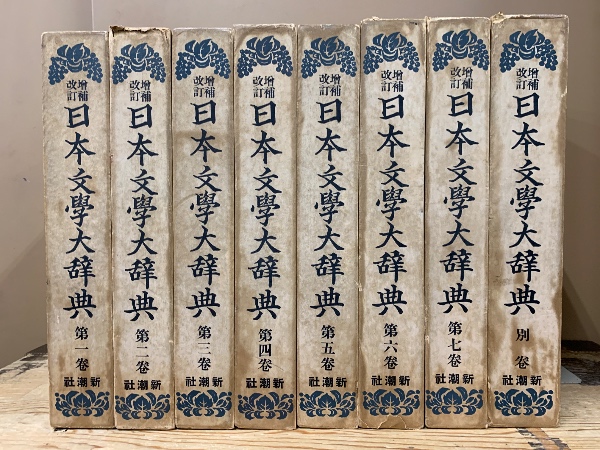 増補
改訂
日本文學大辞典
第一卷
新潮社
増補
改訂
日本文學大辞典
第二卷
新潮社
増補
改訂
日本文學大辞典
第三卷
新潮社
増補
改訂
日本文學大辞典
第四卷
新潮社
増補
改訂
日本文學大辞典
第五卷
新潮社
増補
改訂
日本文學大辞典
第六卷
新潮社
増補
改訂
日本文學大辞典
第七卷
新潮社
増補
改訂
日本文學大辞典
別卷
新潮社